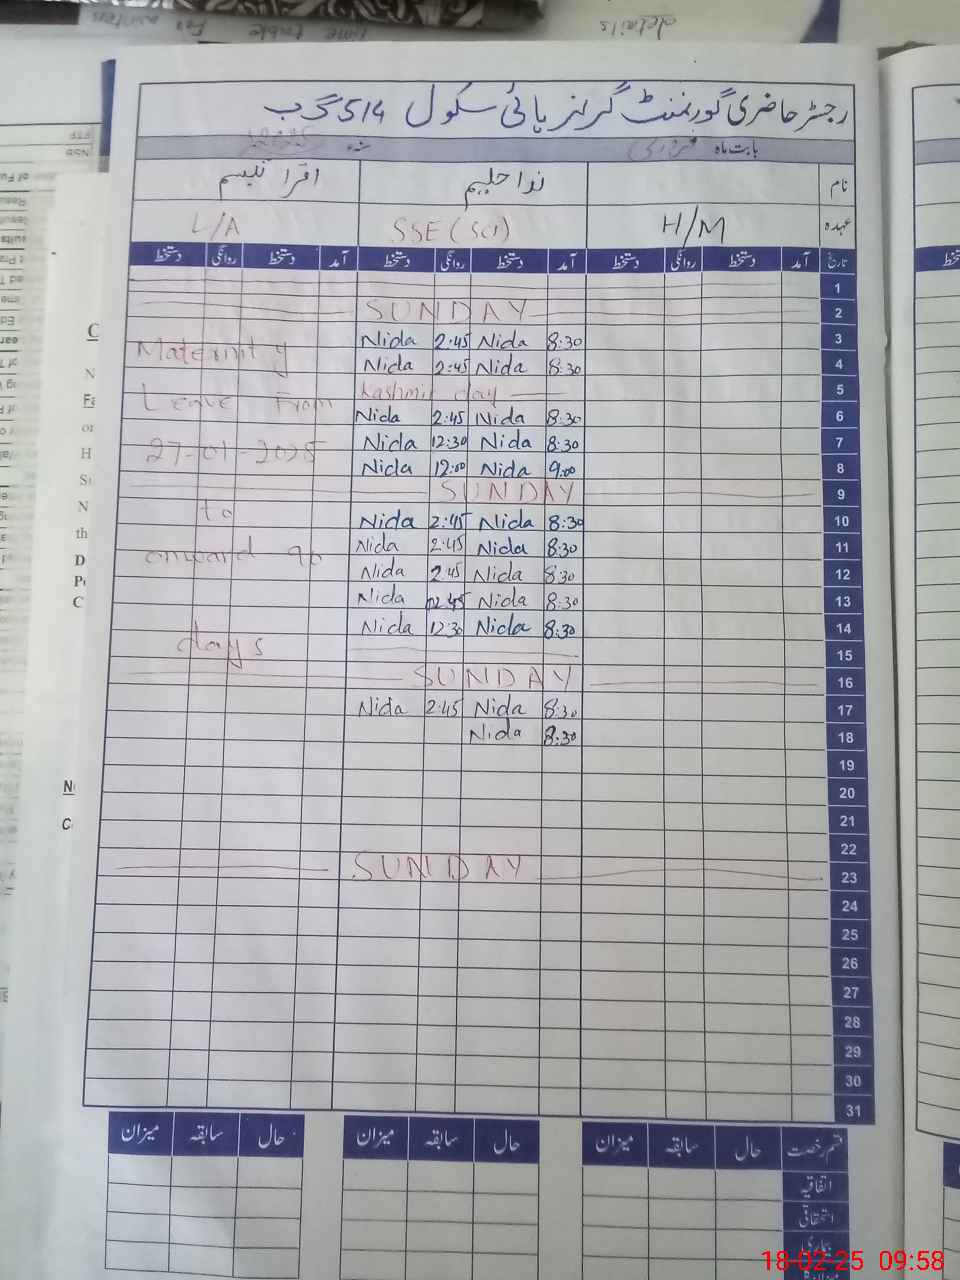 رجسٹر حاضری گورنمنٹ گرلز ہائی سکول 514 گ ب
بابت ماہ فروری سنہ
نام ندا حلیم اقرا
عہدہ H/M SSE (Sci) L/A
تاریخ آمد دستخط روانگی دستخط آمد دستخط روانگی دستخط آمد دستخط روانگی دستخط
1
2 SUNDAY
3 8:30 Nida 2:45 Nida
Maternity
4 8:30 Nida 2:45 Nida
5 Kashmir day
Leave From
6 8:30 Nida 2:45 Nida
7 8:30 Nida 12:30 Nida
27-01-2025
8 9:00 Nida 12:00 Nida
9 SUNDAY
to
10 8:30 Nida 2:45 Nida
11 8:30 Nida 2:45 Nida
onward 90
12 8:30 Nida 2:45 Nida
13 8:30 Nida 2:45 Nida
14 8:30 Nida 12:30 Nida
days
15
16 SUNDAY
17 8:30 Nida 2:45 Nida
18 8:30 Nida
19
20
21
22
23 SUNDAY
24
25
26
27
28
29
30
31
قسم رخصت حال سابقہ میزان حال سابقہ میزان حال سابقہ میزان
اتفاقیہ
استحقاقی
بیماری
18-02-25 09:58